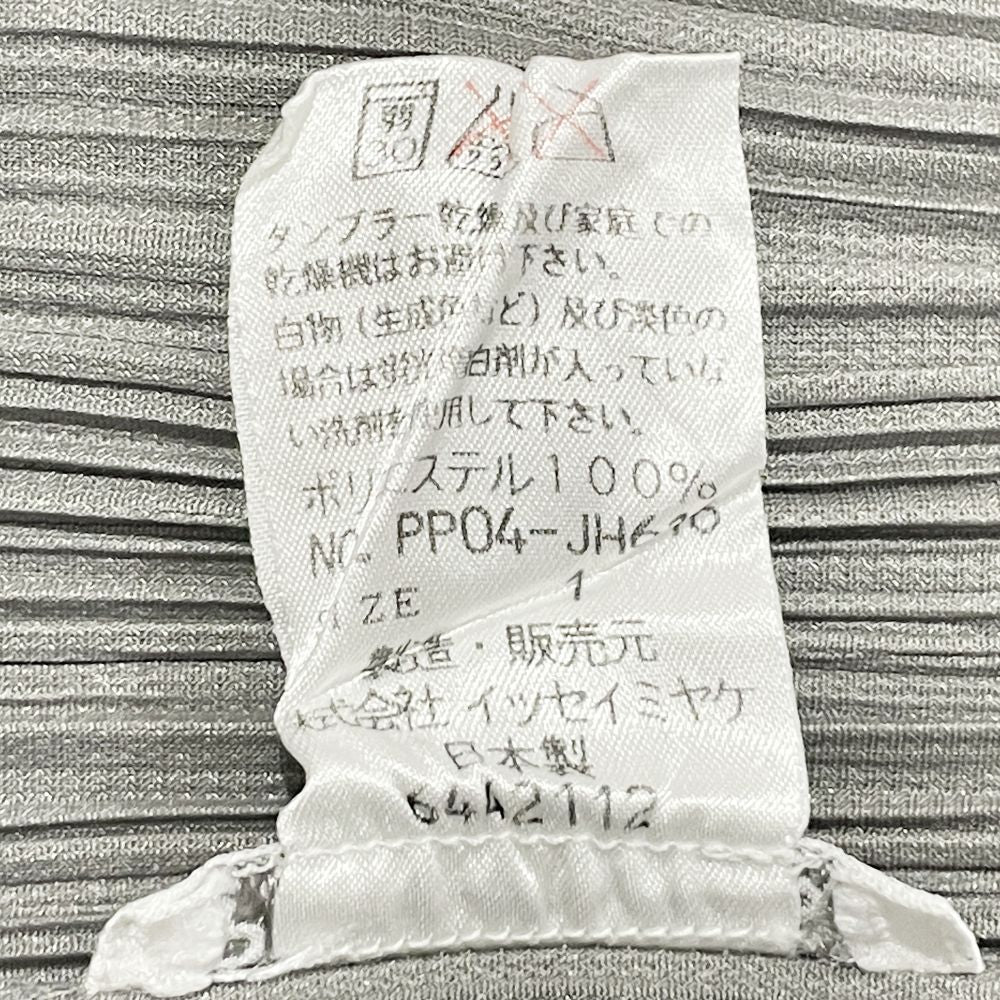 弱
30
タンブラー乾燥及び家庭での
乾燥機はお避け下さい。
白物（生成色など）及び淡色の
場合は蛍光増白剤が入っていな
い洗剤を使用して下さい。
ポリエステル100%
NO. PP04-JH610
SIZE 1
製造・販売元
株式会社イッセイミヤケ
日本製
6442112